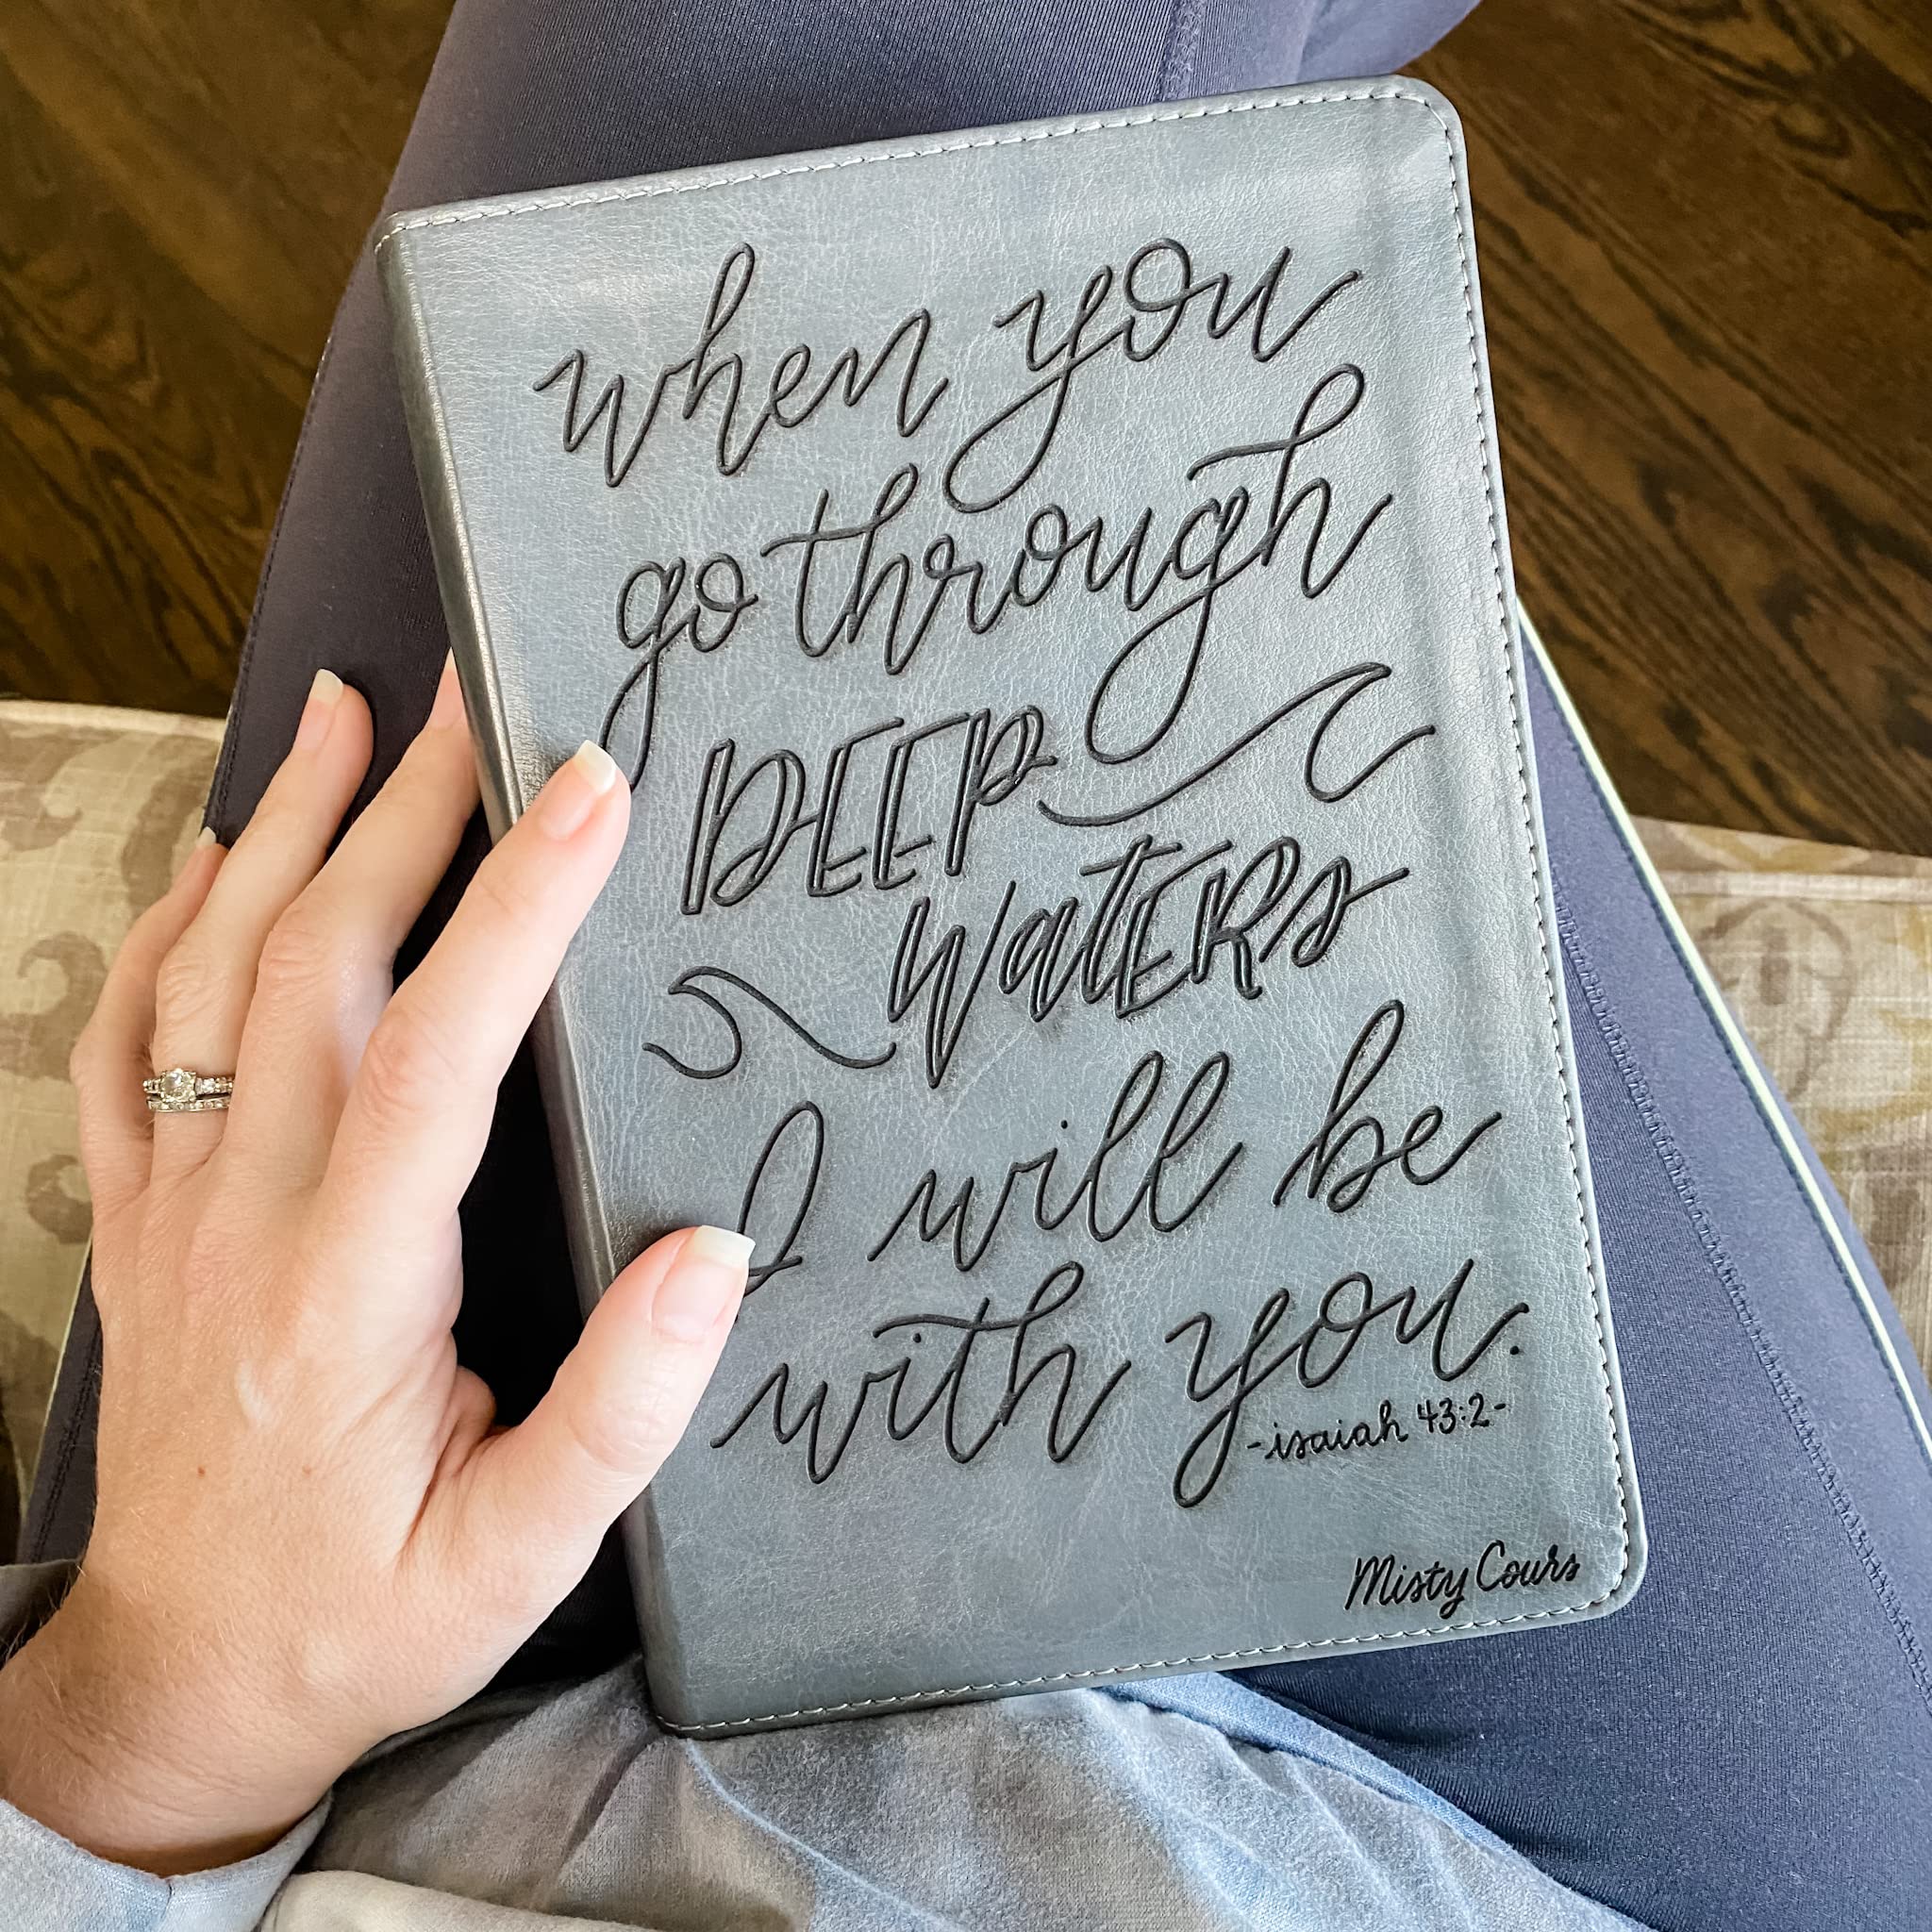 when you
go through
DEEP
WaTERs
I will be
with you.
-isaiah 43:2-
Misty Cours